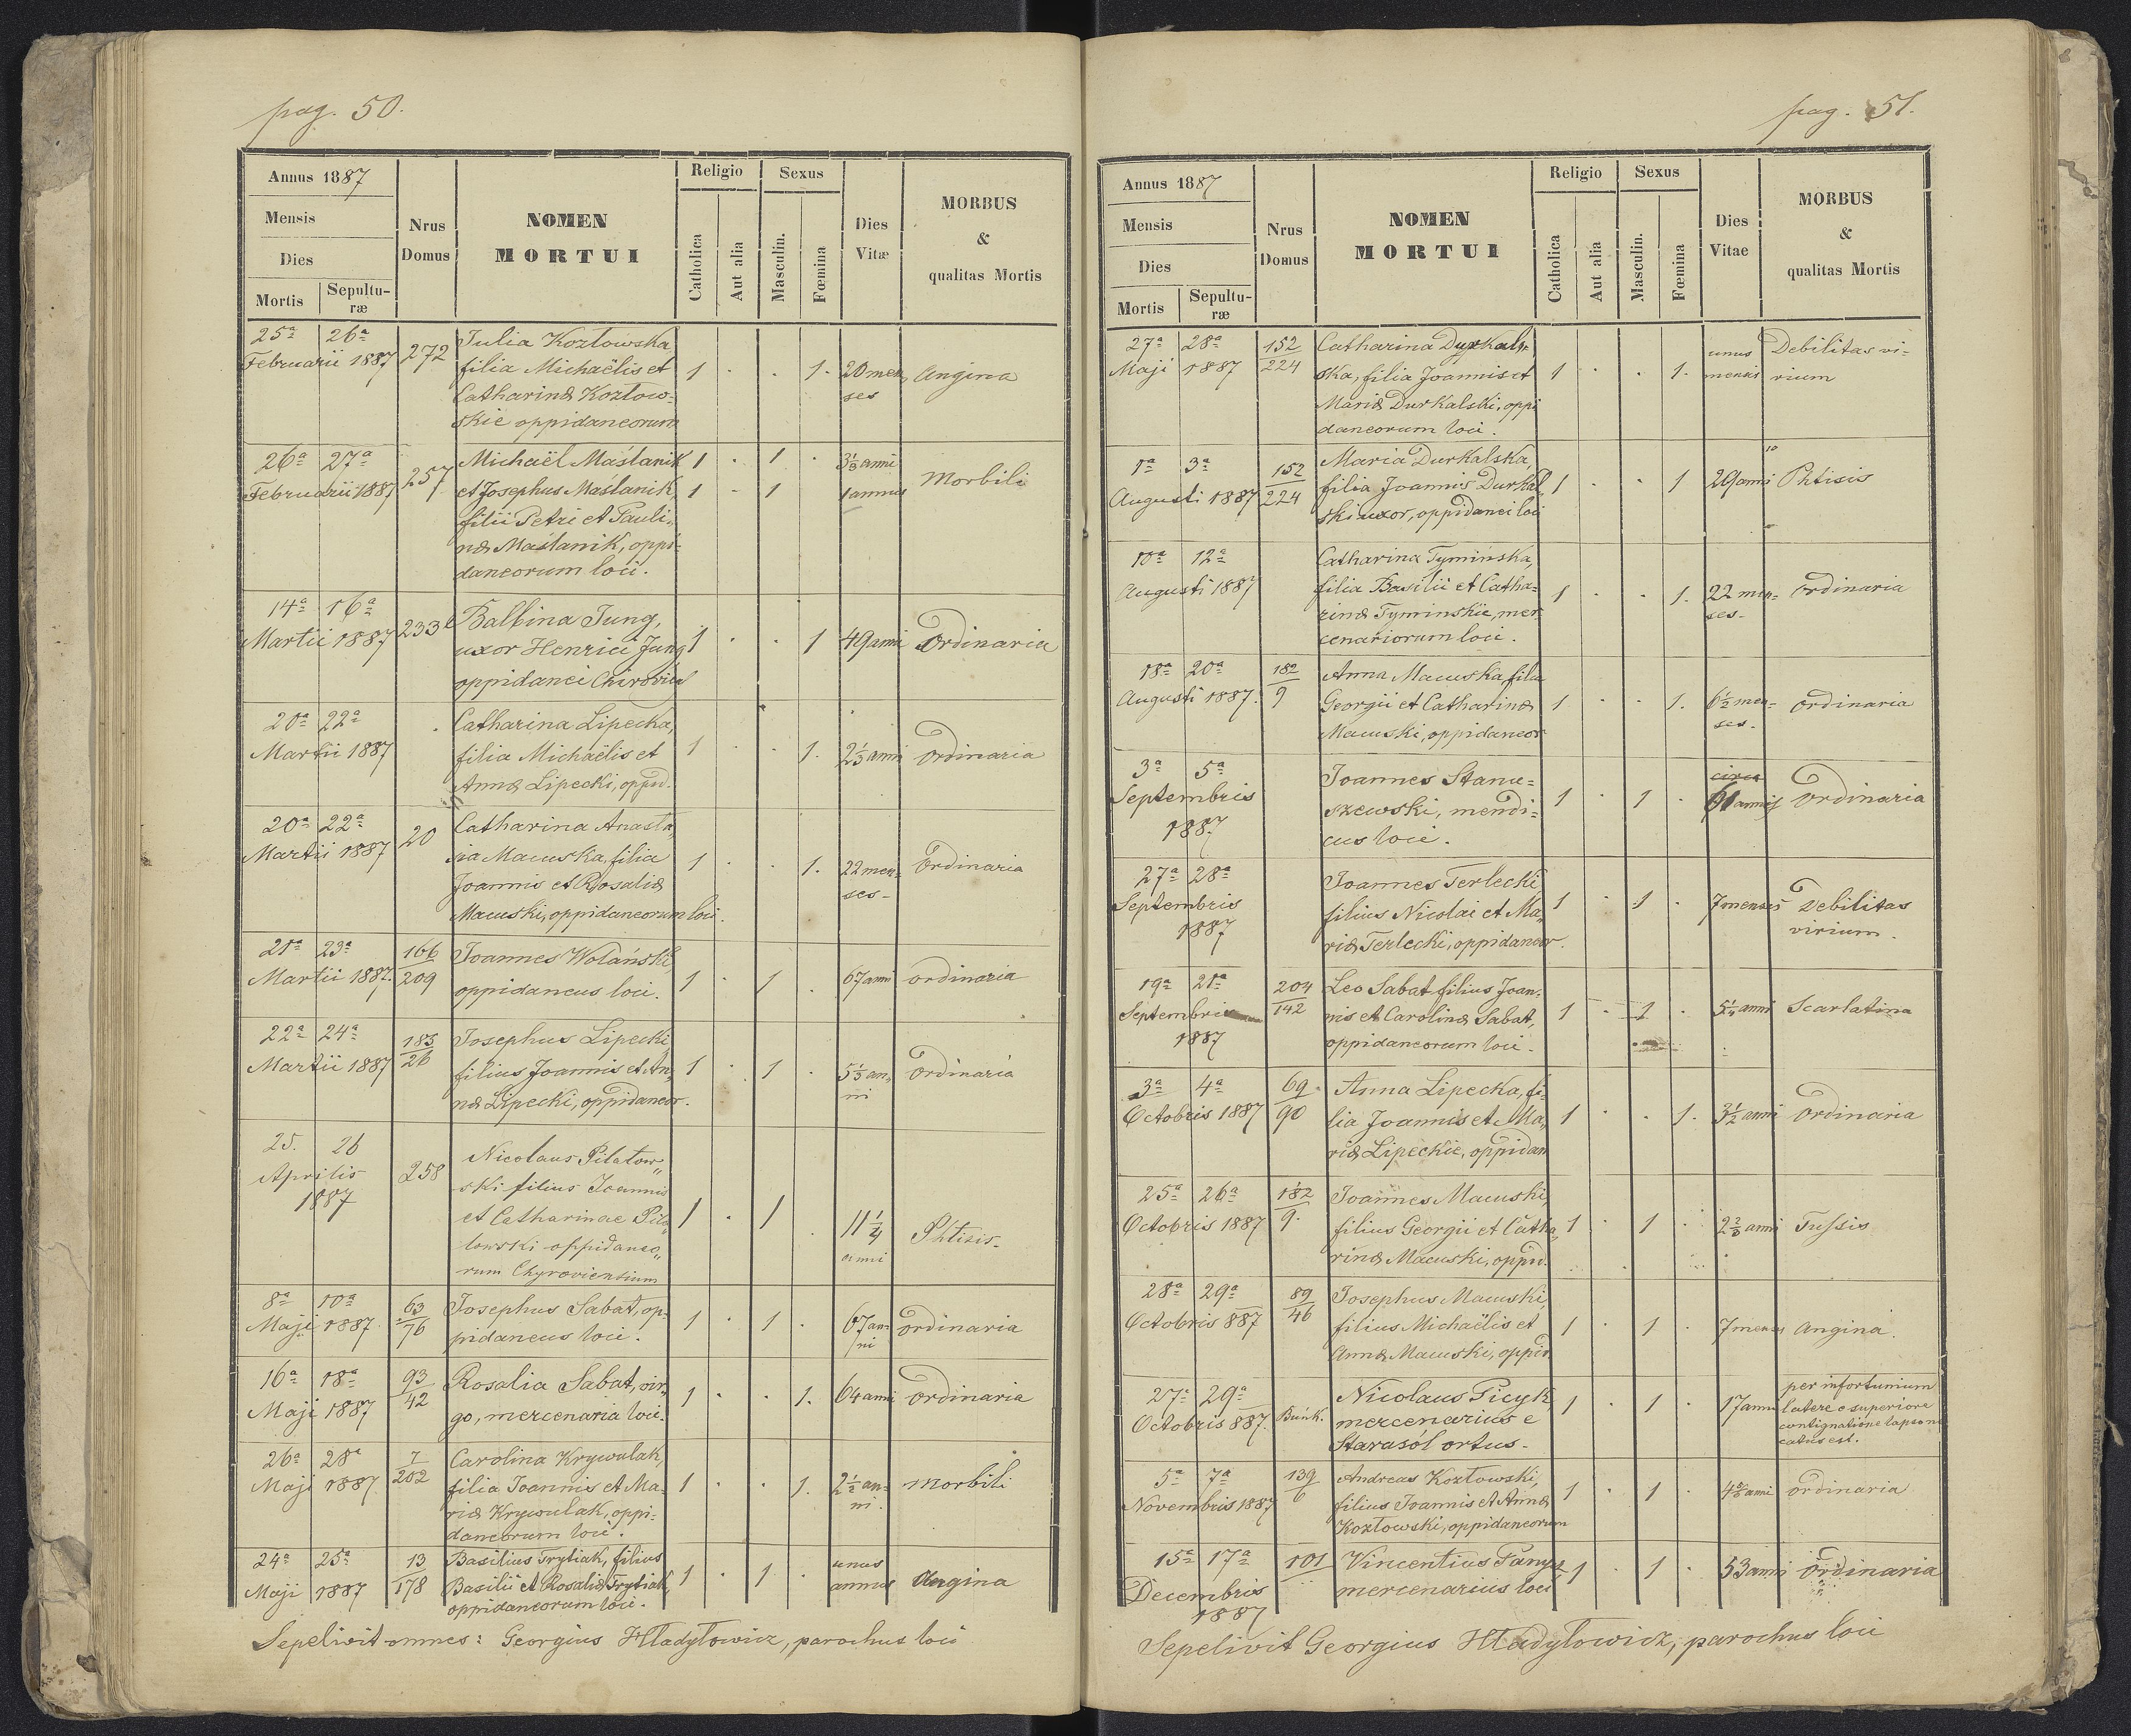 pag. 50.
Annus 1887
Mensis
Dies
Mortis
Sepultu-
ræ
Nrus
Domus
NOMEN
MORTUI
Religio
Catholica
Aut alia
Sexus
Masculin.
Fœmina
Dies
Vitæ
MORBUS
&
qualitas Mortis
25ª 26ª
Februarii 1887 272
Julia Kozłowska,
filia Michaëlis et
Catharinæ Kozłow-
skie oppidaneorum
1 . . 1. 20 men
ses
Angina
26ª 27ª
Februarii 1887 257
Michaël Maślanik 1 . 1 . 3½ anni
et Josephus Maślanik, 1 . 1 1 annus
filii Petri et Pauli-
næ Maślanik, oppi-
daneorum loci.
Morbili
14ª 16ª
Martii 1887 233
Balbina Jung,
uxor Henrici Jung
oppidanei
1 . . 1 49 anni Ordinaria
20ª 22ª
Martii 1887
Catharina Lipecka,
filia Michaëlis et
Annæ Lipecki, oppid.
1 . . 1. 2⅓ anni Ordinaria
20ª 22ª
Martii 1887 20
Catharina Anasta-
sia Macuska, filia
Joannis et Rosaliæ
Macuski, oppidaneorum loci.
1 . . 1. 22 men-
ses-
Ordinaria
21ª 23ª
Martii 1887. 166
209
Joannes Wolański,
oppidaneus loci.
1 . 1 . 67 anni ordinaria
22ª 24ª
Martii 1887 185
26
Josephus Lipecki,
filius Joannis et An-
næ Lipecki, oppidaneor.
1 . 1 . 5⅓ an-
ni
Ordinaria
25. 26
Aprilis
1887
258
Nicolaus Pilatow„
ski filius Joannis
et Catharinae Pila„
towski oppidaneo„
rum Chyroviensium
1 . 1 . 11¼
anni
Phtisis.
8ª 10ª
Maji 1887 63
76
Josephus Sabat, op-
pidaneus loci.
1 . 1 . 67 an-
ni
Ordinaria
16ª 18ª
Maji 1887 93
42
Rosalia Sabat, vir-
go, mercenaria loci.
1 . . 1. 64 anni Ordinaria
26ª 28ª
Maji 1887 7
202
Carolina Krywulak,
filia Joannis et Ma-
riæ Krywulak, oppi-
daneorum loci.
1 . . 1. 2½ an-
ni.
Morbili
24ª 25ª
Maji 1887 13
178
Basilius Trytiak, filius
Basilii et Rosaliæ Trytiak,
oppidaneorum loci.
1 . 1 . unus
annus
Angina
Sepelivit omnes: Georgius Hładyłowicz, parochus loci
pag. 51.
Annus 1887
Mensis
Dies
Mortis
Sepultu-
ræ
Nrus
Domus
NOMEN
MORTUI
Religio
Catholica
Aut alia
Sexus
Masculin.
Fœmina
Dies
Vitae
MORBUS
&
qualitas Mortis
27ª 28ª
Maji 1887 152
224
Catharina Durkal-
ska, filia Joannis et
Mariæ Durkalski, oppi
daneorum loci.
1 . . 1. unus
mensis
Debilitas vi-
rium
1ª 3ª
Augusti 1887 152
224
Maria Durkalska,
filia Joannis Durkal-
ski uxor, oppidanei loci
1 . . 1 29 anni Phtisis
10ª 12ª
Augusti 1887
Catharina Tyminska,
filia Basilii et Catha-
rinæ Tyminskie, mer-
cenariorum loci.
1 . . 1. 22 men-
ses-
Ordinaria
18ª 20ª
Augusti 1887. 182
9
Anna Macuska, filia
Georgii et Catharinæ
Macuski, oppidaneor
1 . . 1. 6½ men-
ses.
Ordinaria
3ª 5ª
Septembris
1887
Joannes Stanu-
szewski, mendi-
cus loci.
1 . 1 . circa
61 annis
Ordinaria
27ª 28ª
Septembris
1887
Joannes Terlecki,
filius Nicolai et Ma-
riæ Terlecki, oppidaneor.
1 . 1 . 7 menses Debilitas
virium.
19ª 21ª
Septembris
1887
204
142
Leo Sabat filius Joan-
nis et Carolinæ Sabat,
oppidaneorum loci.
1 . 1 . 5¼ anni Scarlatina
3ª 4ª
Octobris 1887 69
90
Anna Lipecka, fi-
lia Joannis et Ma-
riæ Lipeckie, oppidan
1 . . 1. 3½ anni Ordinaria
25ª 26ª
Octobris 1887 182
9.
Joannes Macuski,
filius Georgii et Catha-
rinæ Macuski, oppid.
1 . 1 . 2⅔ anni Tussis
28ª 29ª
Octobris 887 89
46
Josephus Macuski,
filius Michaëlis et
Annæ Macuski, oppid
1 . 1 . 7 menses Angina.
27ª 29ª
Octobris 887.
Nicolaus Picyk,
mercenarius e
Starasól ortus.
1 . 1 . 17 anni per infortunium
latere e superiore
contignatione lapso
est.
5ª 7ª
Novembris 1887 139
6
Andreas Kozłowski,
filius Joannis et Annæ
Kozłowski, oppidaneorum
1 . 1 . anni Ordinaria
15ª 17ª
Decembris
1887
101
Vincentius
mercenarius loci
1 . 1 . 53 anni Ordinaria
Sepelivit Georgius Hładyłowicz, parochus loci